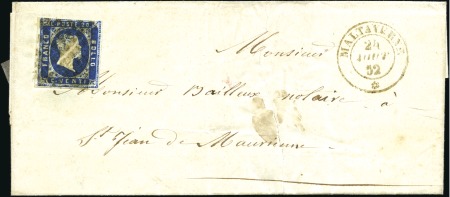 C. POSTE 20
FRANCO
BOLLO
VENTI
MALTAVERNE
24
AOUT
52
Monsieur
Monsieur Bailleux notaire à
St Jean de Maurienne